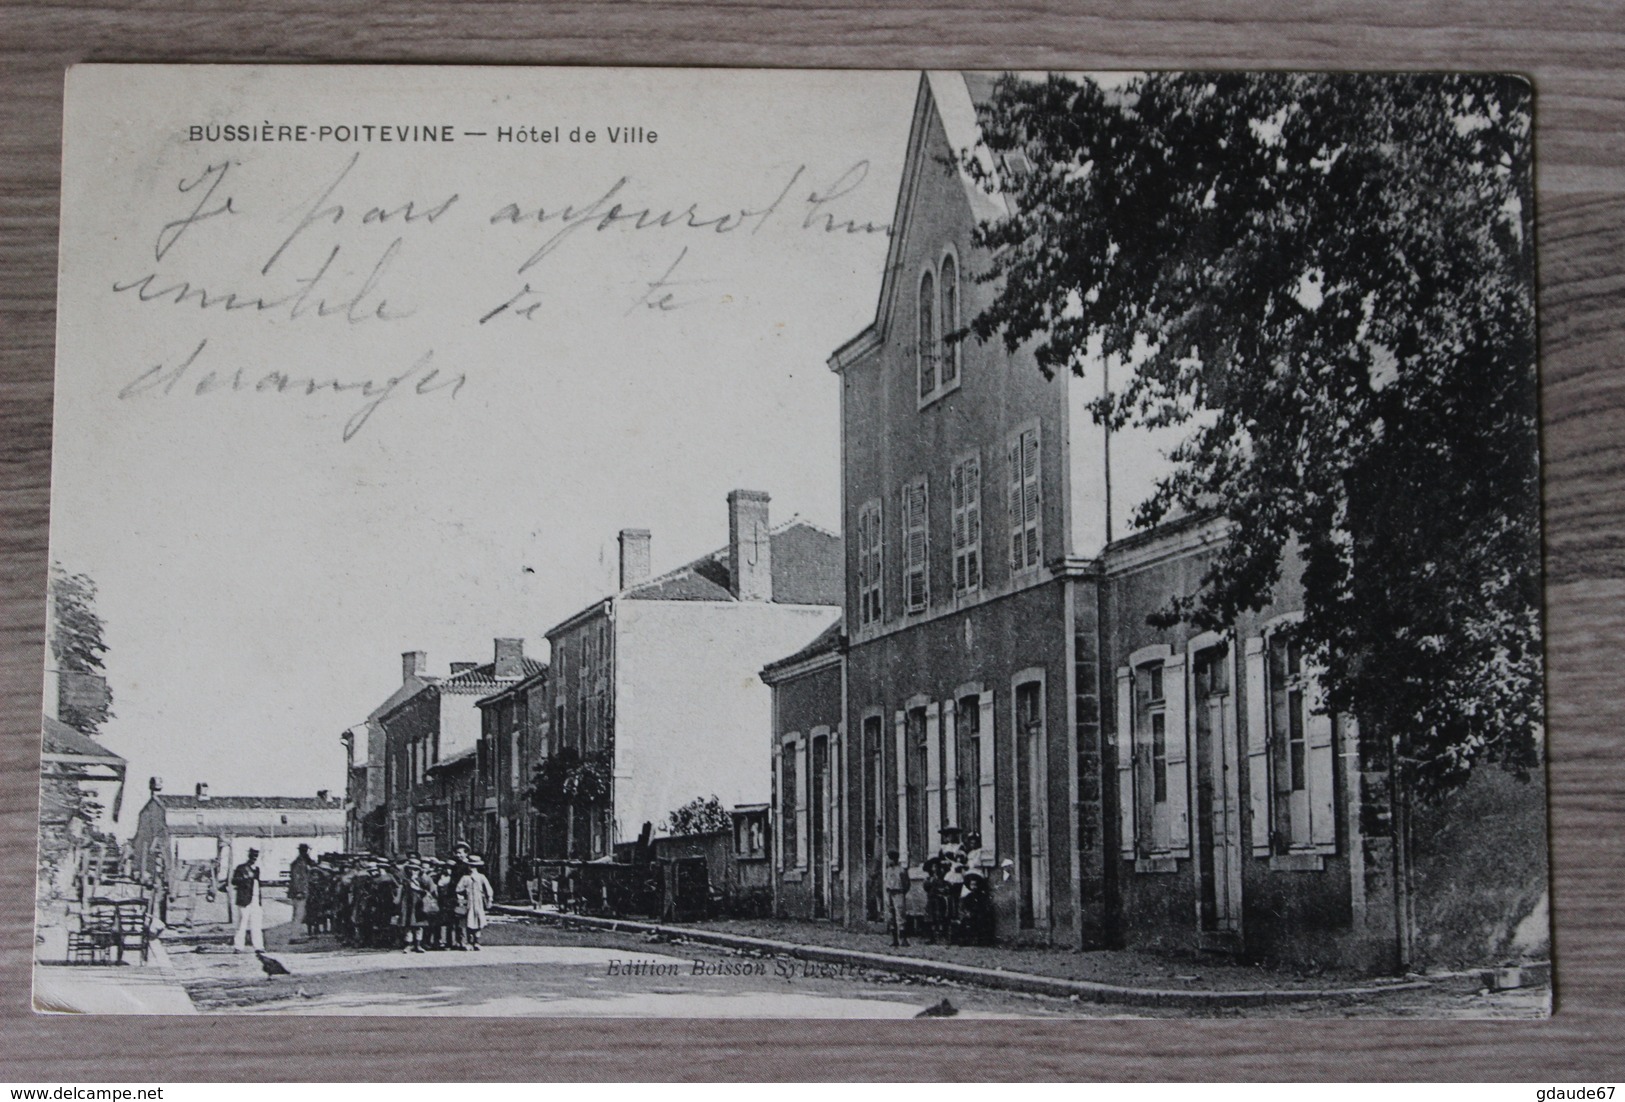 BUSSIÈRE-POITEVINE — Hôtel de Ville
Je pars aujourd'hui
inutile de te
deranger
Edition Boisson Sylvestre
www.delcampe.net
gdaude67